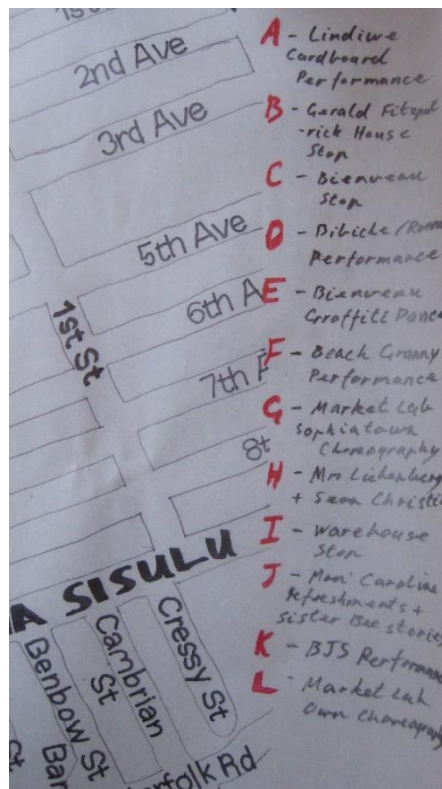 2nd Ave
3rd Ave
5th Ave
6th A
7th
8t
1st St
A SISULU
Benbow St
Cambrian
St
Cressy St
St
Bar
rfolk Rd
A - Lindiwe
Cardboard
Performance
B - Gerald Fitzpat
-rick House
Stop
C - Bienveau
Stop
D - Bibiche/
Performance
E - Bienveau
Graffiti Dance
F - Beach Granny
Performance
G - Market Lab
Sophiatown
Choreography
H - Mrs
+ Sean Christi
I - Warehouse
Stop
J - Mon' Caroline
Refreshments +
Sister Bae stories
K - BJS Performan
L - Market Lab
Own Choreography